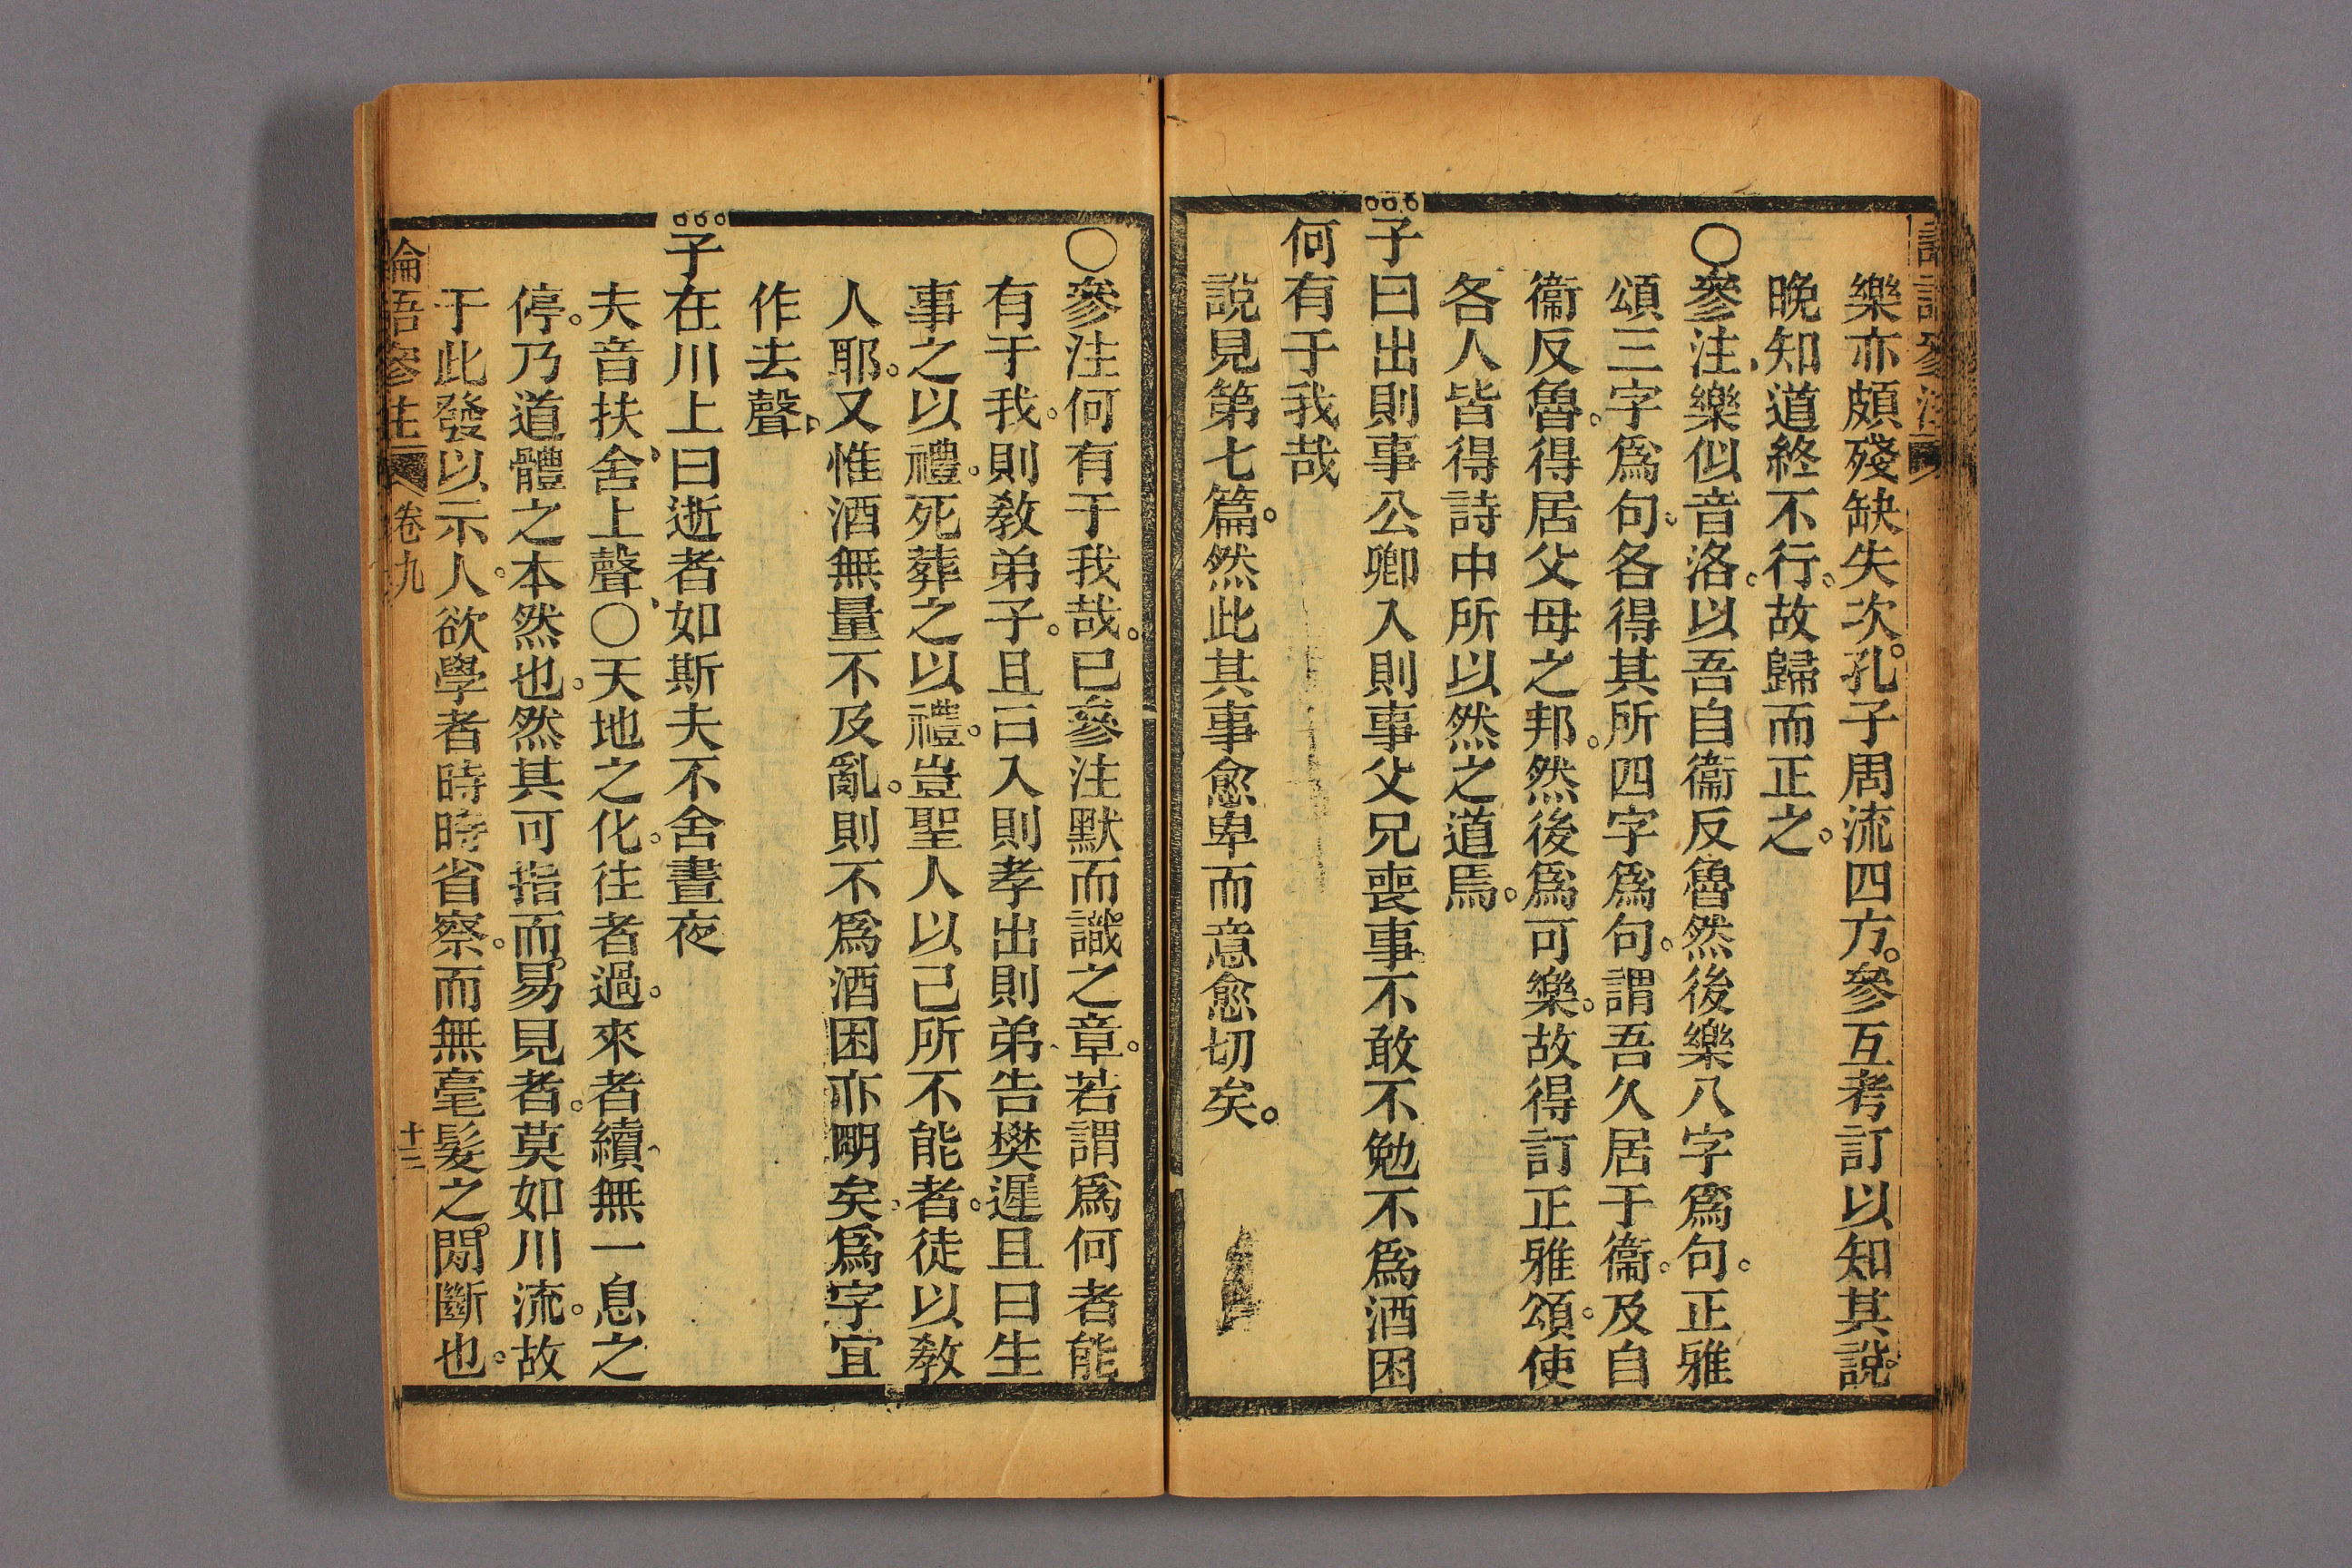 樂亦頗殘缺失次。孔子周流四方。參互考訂以知其說。
晚知道終不行。故歸而正之。
○參注樂似音洛。以吾自衞反魯然後樂八字爲句。正雅
頌三字爲句。各得其所四字爲句。謂吾久居于衞。及自
衞反魯。得居父母之邦。然後爲可樂。故得訂正雅頌。使
各人皆得詩中所以然之道焉。
子曰出則事公卿入則事父兄喪事不敢不勉不爲酒困
何有于我哉
說見第七篇。然此其事愈卑而意愈切矣。
○參注何有于我哉。已參注默而識之章。若謂爲何者能
有于我。則敎弟子。且曰入則孝出則弟告樊遲且曰生
事之以禮。死葬之以禮。豈聖人以己所不能者。徒以敎
人耶。又惟酒無量不及亂。則不爲酒困亦明矣。爲字宜
作去聲
子在川上曰逝者如斯夫不舍晝夜
夫音扶舍上聲○天地之化。往者過。來者續無一息之
停。乃道體之本然也。然其可指而易見者。莫如川流。故
于此發以示人。欲學者時時省察。而無毫髮之閒斷也。
論語參注 卷九 十三